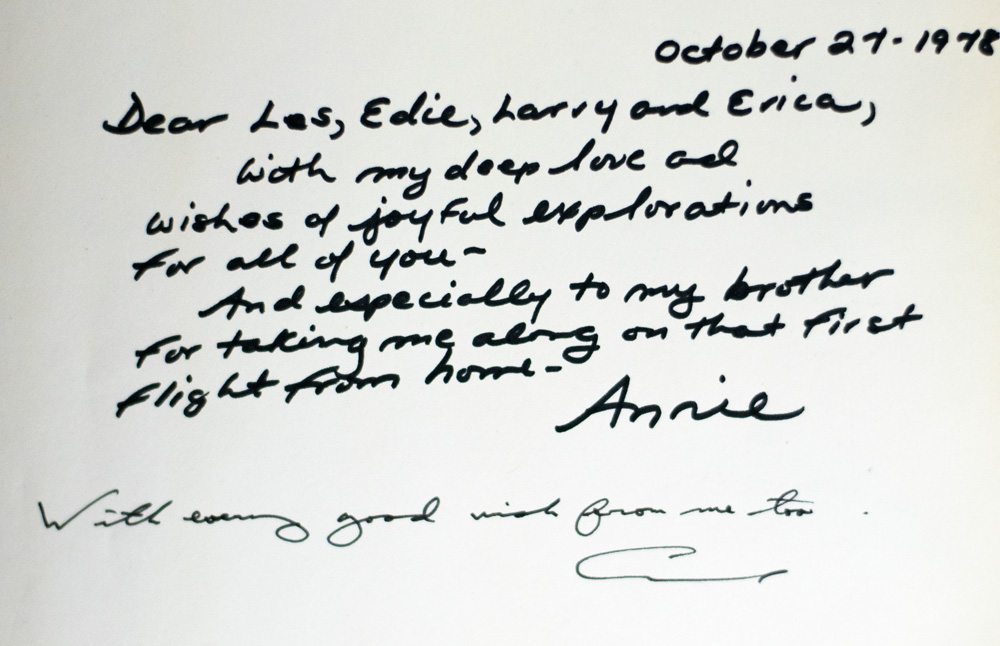 October 27-1978
Dear Les, Edie, Larry and Erica,
With my deep love and
wishes of joyful explorations
for all of you-
And especially to my brother
for taking me along on that first
flight from home-
Annie
With every good wish from me too.